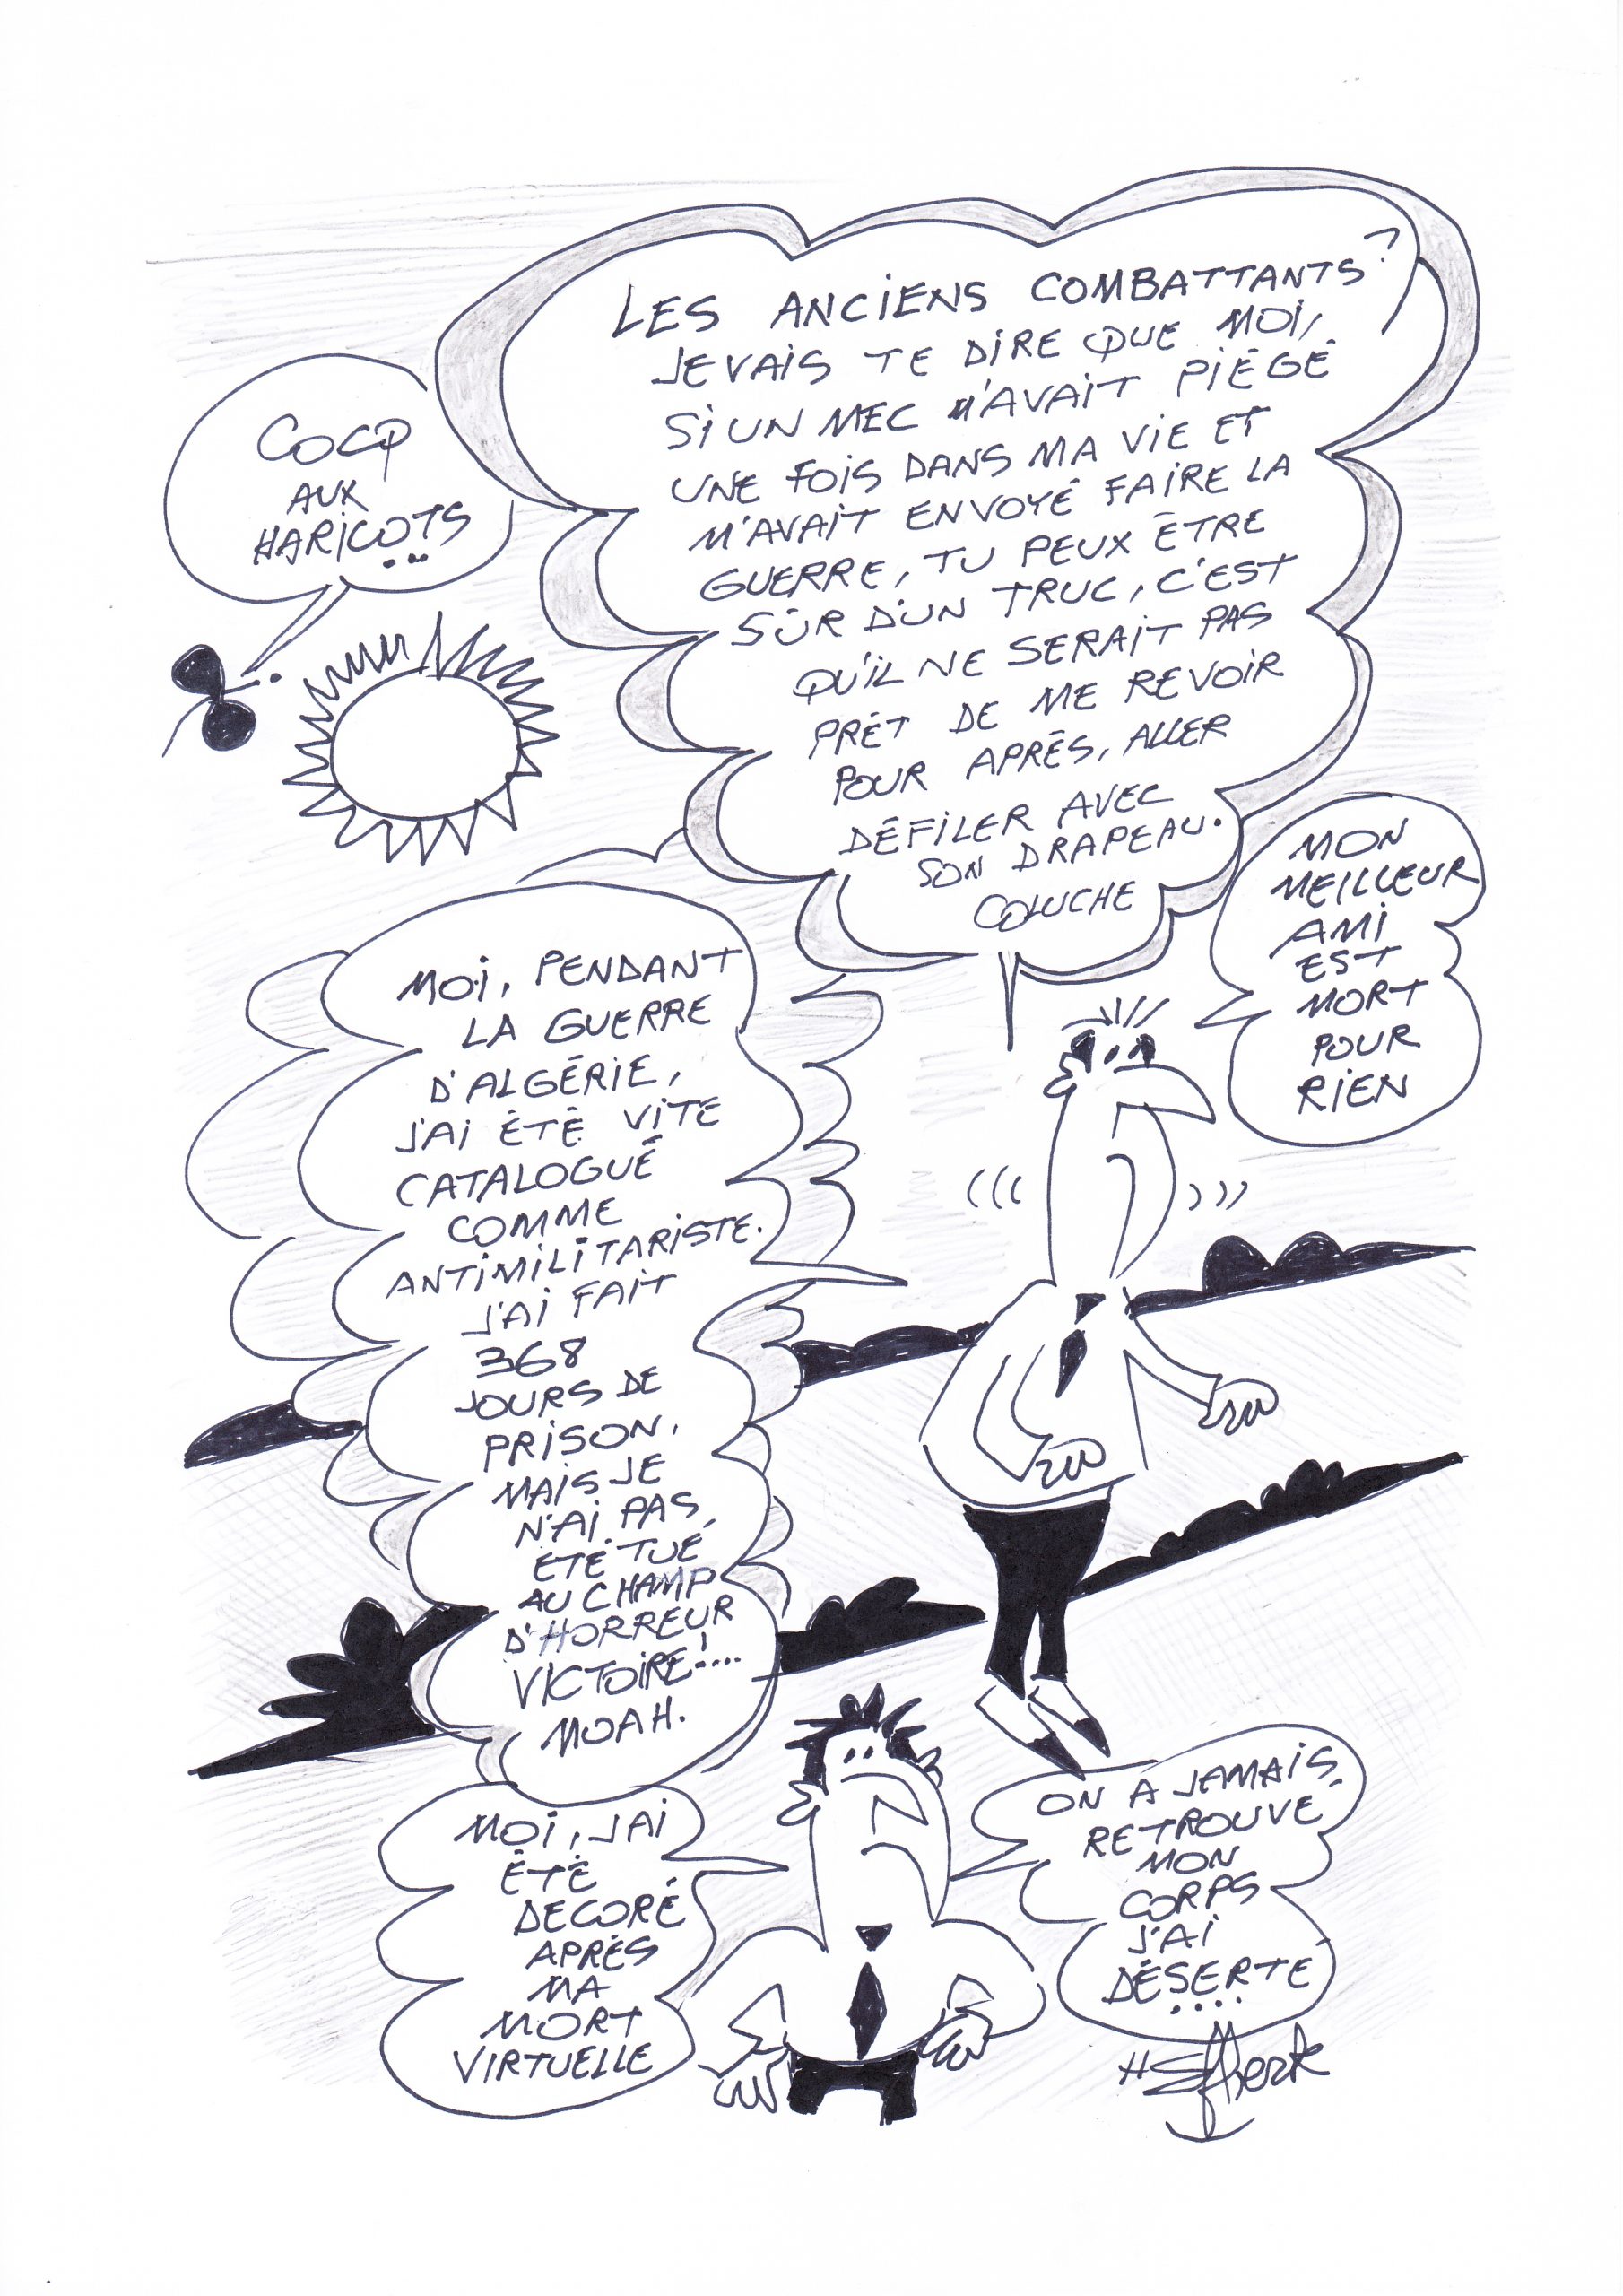 LES ANCIENS COMBATTANTS ?
JE VAIS TE DIRE QUE MOI,
SI UN MEC M'AVAIT PIÉGÉ
UNE FOIS DANS MA VIE ET
M'AVAIT ENVOYÉ FAIRE LA
GUERRE, TU PEUX ÊTRE
SÛR D'UN TRUC, C'EST
QU'IL NE SERAIT PAS
PRÊT DE ME REVOIR
POUR APRÈS, ALLER
DÉFILER AVEC
SON DRAPEAU.
COLUCHE
COCQ
AUX
HARICOTS
...
MON
MEILLEUR
AMI
EST
MORT
POUR
RIEN
MOI, PENDANT
LA GUERRE
D'ALGÉRIE,
J'AI ÉTÉ VITE
CATALOGUÉ
COMME
ANTIMILITARISTE.
J'AI FAIT
368
JOURS DE
PRISON.
MAIS JE
N'AI PAS
ÉTÉ TUÉ
AU CHAMP
D'HORREUR
VICTOIRE !...
MOAH.
MOI, J'AI
ÉTÉ
DECORÉ
APRÈS
MA
MORT
VIRTUELLE
ON A JAMAIS
RETROUVÉ
MON
CORPS
J'AI
DÉSERTÉ
....